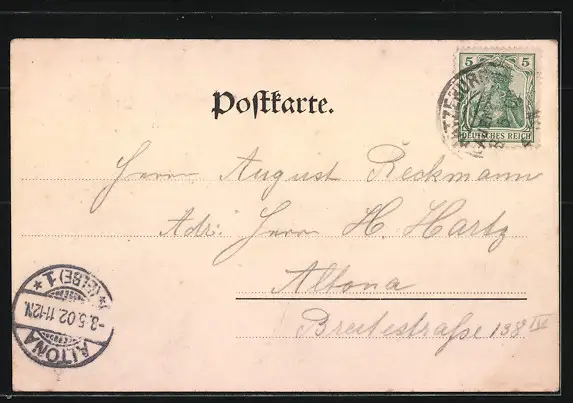 Postkarte.
5 5
DEUTSCHES REICH
Herrn August Reckmann
Adr: Herrn H. Hartz
Altona
Breitestraße 138 IV
ALTONA
-8.5.02.11-12N.
* (ELBE) 1 *